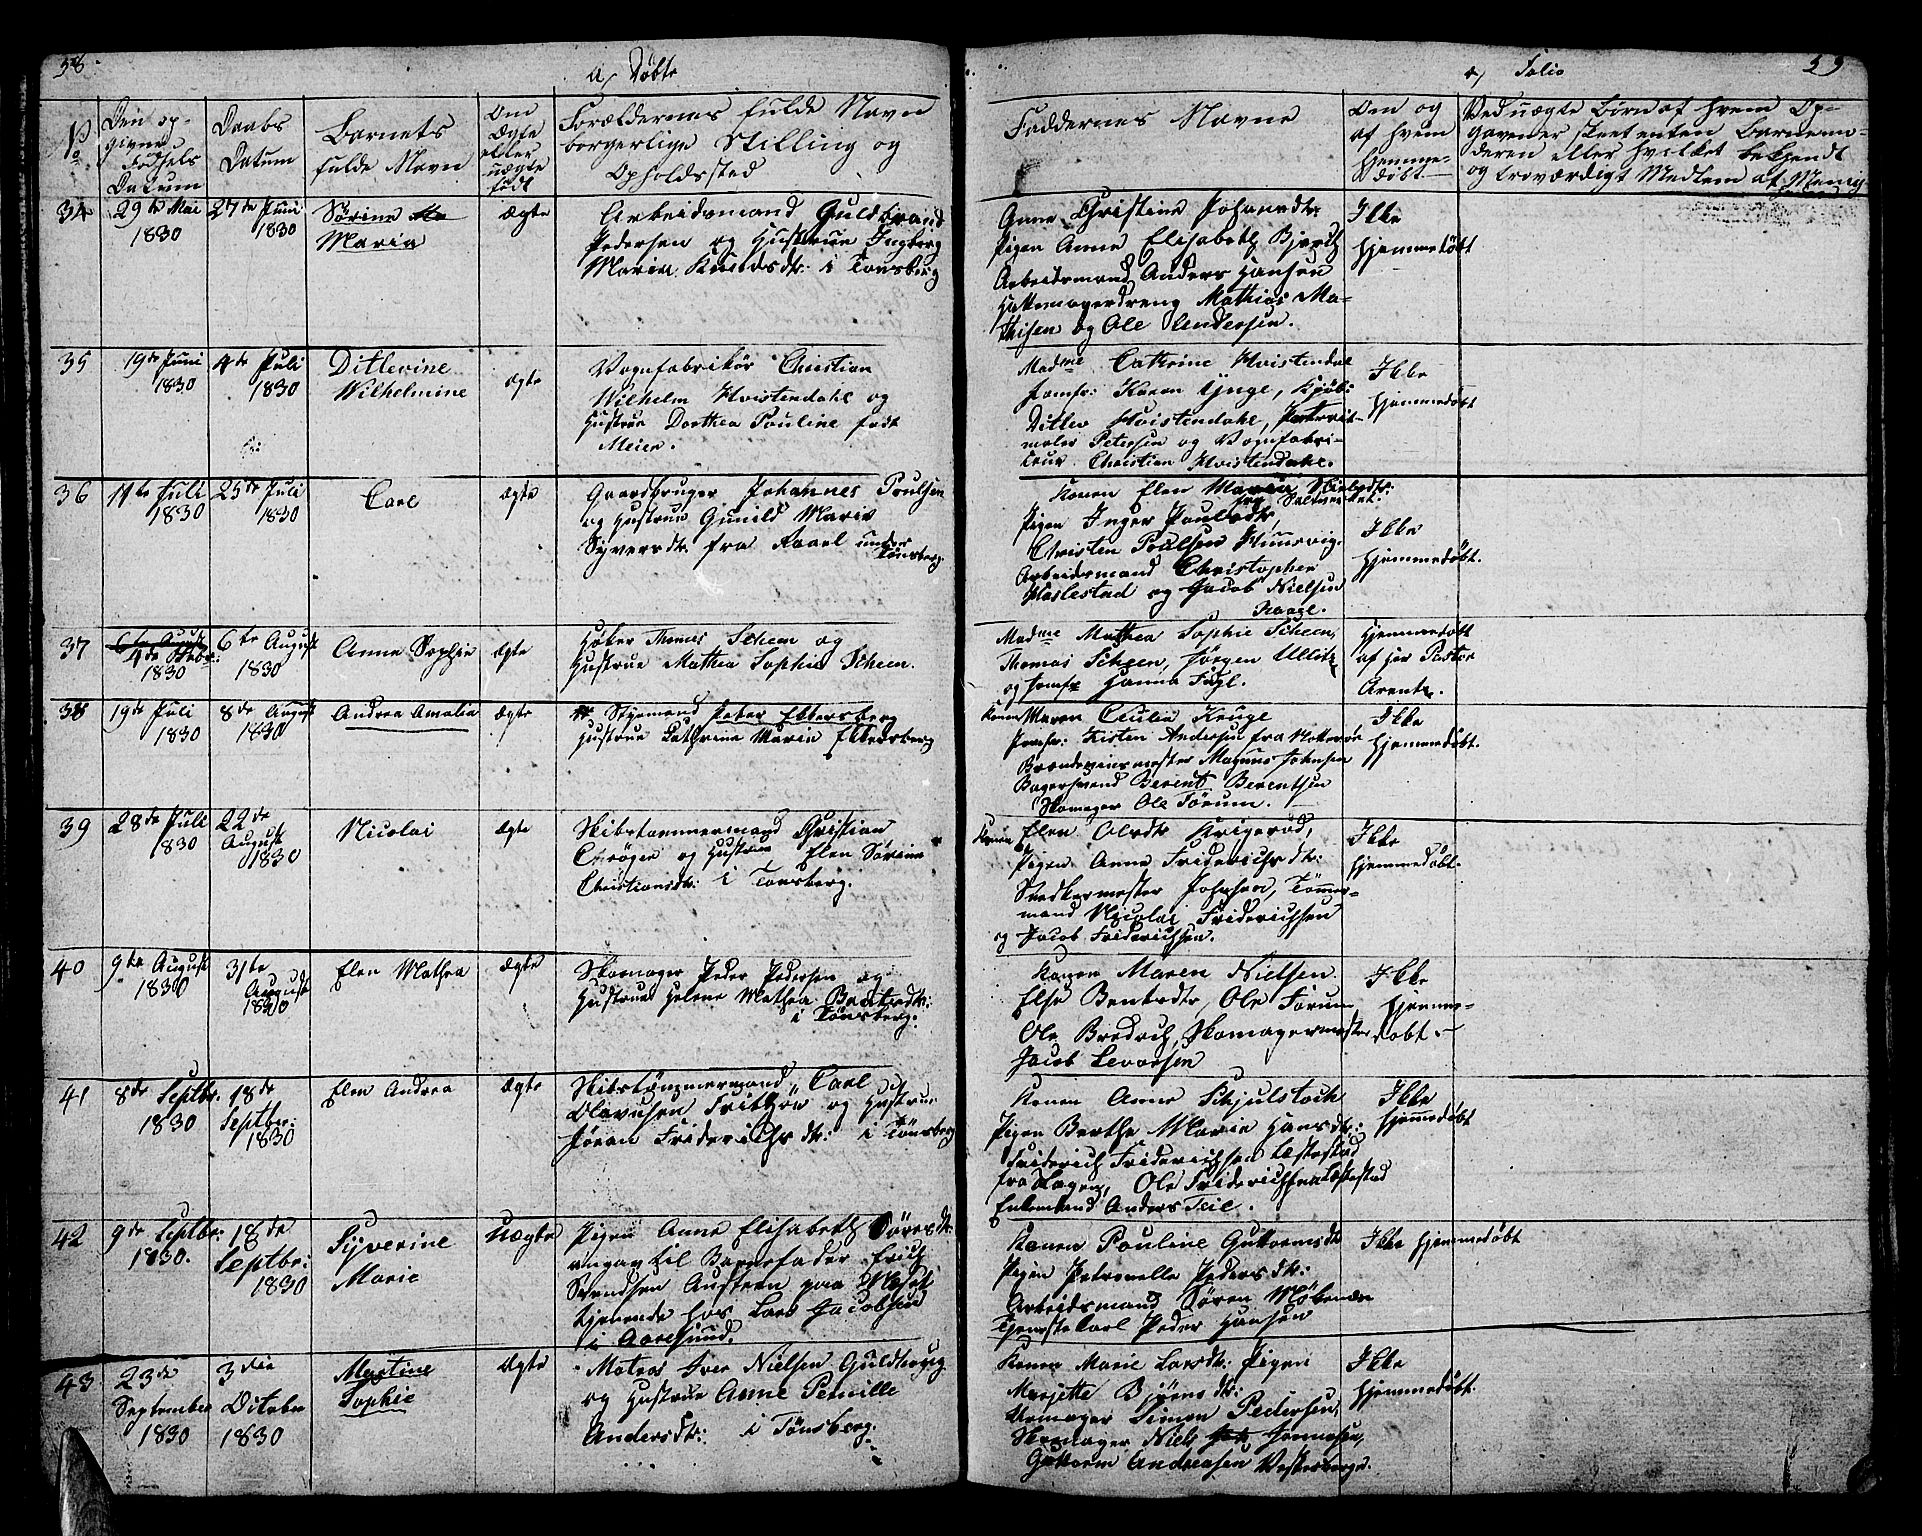 58.
a, Døbte
No
Den op-
givne
Fødsels
Datum
Daabs
Datum
Barnets
fulde Navn
Om
Ægte
eller
uægte
født
Forældrenes fulde Navn
borgerlige Stilling og
Opholdssted
34
29de Mai
1830
27de Juni
1830
Sørine
Maria
Ægte
Arbeidsmand Guldbrand
Pedersen og Hustrue Ingborg
Maria Knudsdtr: i Tønsberg
35
19de Juni
1830
4de Juli
1830
Ditlevine
Wilhelmine
Ægte
Vognfabrikør Christian
Wilhelm Hvistendahl og
Hustrue Dorthea Pouline født
Meier.
36
11te Juli
1830
25de Juli
1830
Carl
Ægte
Gaardbruger Johannes Poulsen
og Hustrue Gunild Marie
Syversdtr. fra Raael under
Tønsberg
37
1830
6te August
1830
Anne Sophie
Ægte
Høker Thomas Scheen og
Hustrue Mathea Sophie Scheen.
38
19de Juli
1830
8de August
1830
Andrea Amalia
Ægte
Styrmand Peter Ekersberg
Hustrue Cathrine Marie Ekersberg
39
28de Juli
1830
22de
August
1830
Nicolai
Ægte
Skibstømmermand Christian
Thrøger og Hustrue Elen Sørine
Christiansdtr: i Tønsberg.
40
9de August
1830
31te
August
1830
Elen Mathea
Ægte
Skomager Peder Pedersen og
Hustrue Helene Mathea Bentsdtr:
i Tønsberg.
41
8de Septbr.
1830
18de
Septbr:
1830
Elen Andrea
Ægte
Skibstømmermand Carl
Olavusen Frithjov og Hustrue
Jøran Friderichsdtr: i Tønsberg
42
9de Septbr:
1830.
18de
Septbr:
1830
Syverine
Marie
Uægte
Pigen Anne Elisabeth Sørensdtr:
angav til Barnefader Erich
Svendsen Austeen paa
tjenende hos Lars Jacobsen
i Aaresund.
43
23de
September
1830
3die
October
1830
Martine
Sophie
Ægte
Matros Iver Nielsen Guldberg
og Hustrue Anne Pernille
Andersdtr: i Tønsberg.
a, Folio
59
Faddernes Navne
Om og
af hvem
hjemme-
døbt
Ved uægte Børn af hvem Op-
gavener skeet enten Barnemo-
deren eller hvilket bekjendt
og troværdigt Medlem af Menig
Anne Christine Johansdtr.
Pigen Anne Elisabeth
Arbeidsmand Anders Hansen
Hattemagerdreng Mathias Ma-
thisen og Ole Andersen.
Ikke
hjemmedøbt
Madme Cathrine Hvistendal
Jomfr: Karen Kjøb:
Ditlev Hvistendahl, Portrait-
maler Petersen og Vognfabri-
keur Christian Hvistendahl.
Ikke
hjemmedøbt
Konen Elen Maria
Pigen Inger Poulsdtr,
Christen Poulsen
Arbeidsmand Christopher
Haslestad og Jacob Nielsen
Kaage.
Ikke
hjemmedøbt.
Madme Mathea Sophie Scheen,
Thomas Scheen, Jørgen
og Jomfr Hanna Fugl.
Hjemmedøbt
af hr Pastor
Arentz.
Konen Maren Cecilia Kruge
Jomfr: Kisten Andersen fra Nøtterøe
Brændeviinsmester Magnus Johnsen
Bagersvend Berent Berentsen
Skomager Ole Førum.
Ikke
hjemmedøbt.
Konen Elen Olsdtr Krigerød,
Pigen Anne Friderichsdtr:
Snedkermester Johnsen, Tømmer-
mand Nicolai Friderichsen
og Jacob Friderichsen.
Ikke
hjemmedøbt.
Konen Maren Nielsen
Else Bentsdtr, Ole Førum
Ole Brodrich, Skomagermester
Jacob Levorsen
Ikke
hjemme-
døbt.
Konen Anne Schjulstoch
Pigen Berthe Marie Hansdtr:
Friderich Friderichsen
fra Slagen, Ole Friderichsen
Enkemand Anders Teie.
Ikke
hjemmedøbt
Konen Pouline Guttormsdtr
Pigen Petronelle Pedersdtr:
Arbeidsmand Søren
Tjenestekarl Peder Hansen
Ikke hjemmedøbt
Konen Marie Larsdtr: Pigen
Marjette Bjørnsdtr:
Uhrmager Simon Pedersen,
Skomager Niels Hermansen,
Guttorm Andreasen
Ikke
hjemmedøbt.